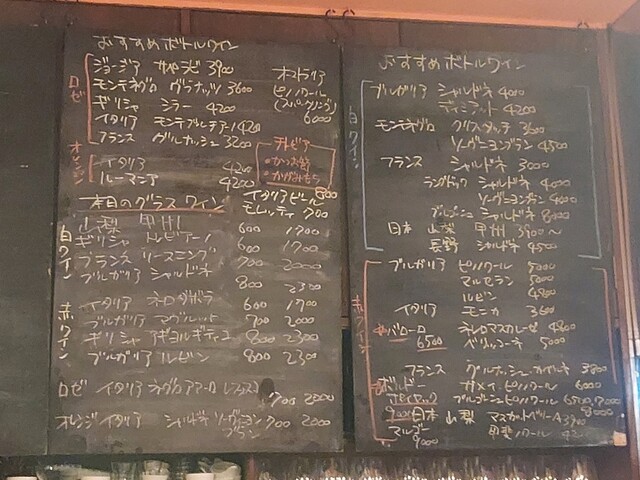 おすすめボトルワイン
ロゼ
ジョージア サペラビ 3900
モンテネグロ ヴラナッツ 3600
ギリシャ シラー 4200
イタリア モンテプルチアーノ 4200
フランス グルナッシュ 3200
オーストラリア
ピノノワール
(スパークリング)
6000
オレンジ
イタリア 4200
ルーマニア 4200
イタリアビール 600
モレッティ 700
本日のグラスワイン
白ワイン
山梨 甲州 600 1700
ギリシャ トレビアーノ 600 1700
フランス リースニング 700 2000
ブルガリア シャルドネ 800 2300
赤ワイン
イタリア ネロダボラ 600 1700
ブルガリア マヴルッド 700 2000
ギリシャ アギヨルギティコ 800 2300
ブルガリア ルビン 800 2300
ロゼ イタリア ネグロアマーロ 700 2000
オレンジ イタリア シャルドネ ソーヴィニヨンブラン 700 2000
おすすめボトルワイン
白ワイン
ブルガリア シャルドネ 4000
ディミャット 4200
モンテネグロ クリスタッチ 3600
ソーヴィニヨンブラン 4500
フランス シャルドネ 3000
ラングドック シャルドネ 4000
ソーヴィニヨンブラン 4000
ブルゴーニュ シャルドネ 8000
日本 山梨 甲州 3900〜
長野 シャルドネ 4500
赤ワイン
ブルガリア ピノノワール 5000
マルセラン 5000
ルビン 4800
イタリア モニカ 3600
バローロ 6500
ネレロマスカレーゼ 4800
ペリッコーネ 5000
フランス グルナッシュ・カリニャン 3800
ボルドー
ガメイ・ピノノワール 6000
ブルゴーニュピノノワール 6500, 7000
8000
9000
日本 山梨 マスカットベリーA 3900
マルゴー
9000
甲斐ノワール